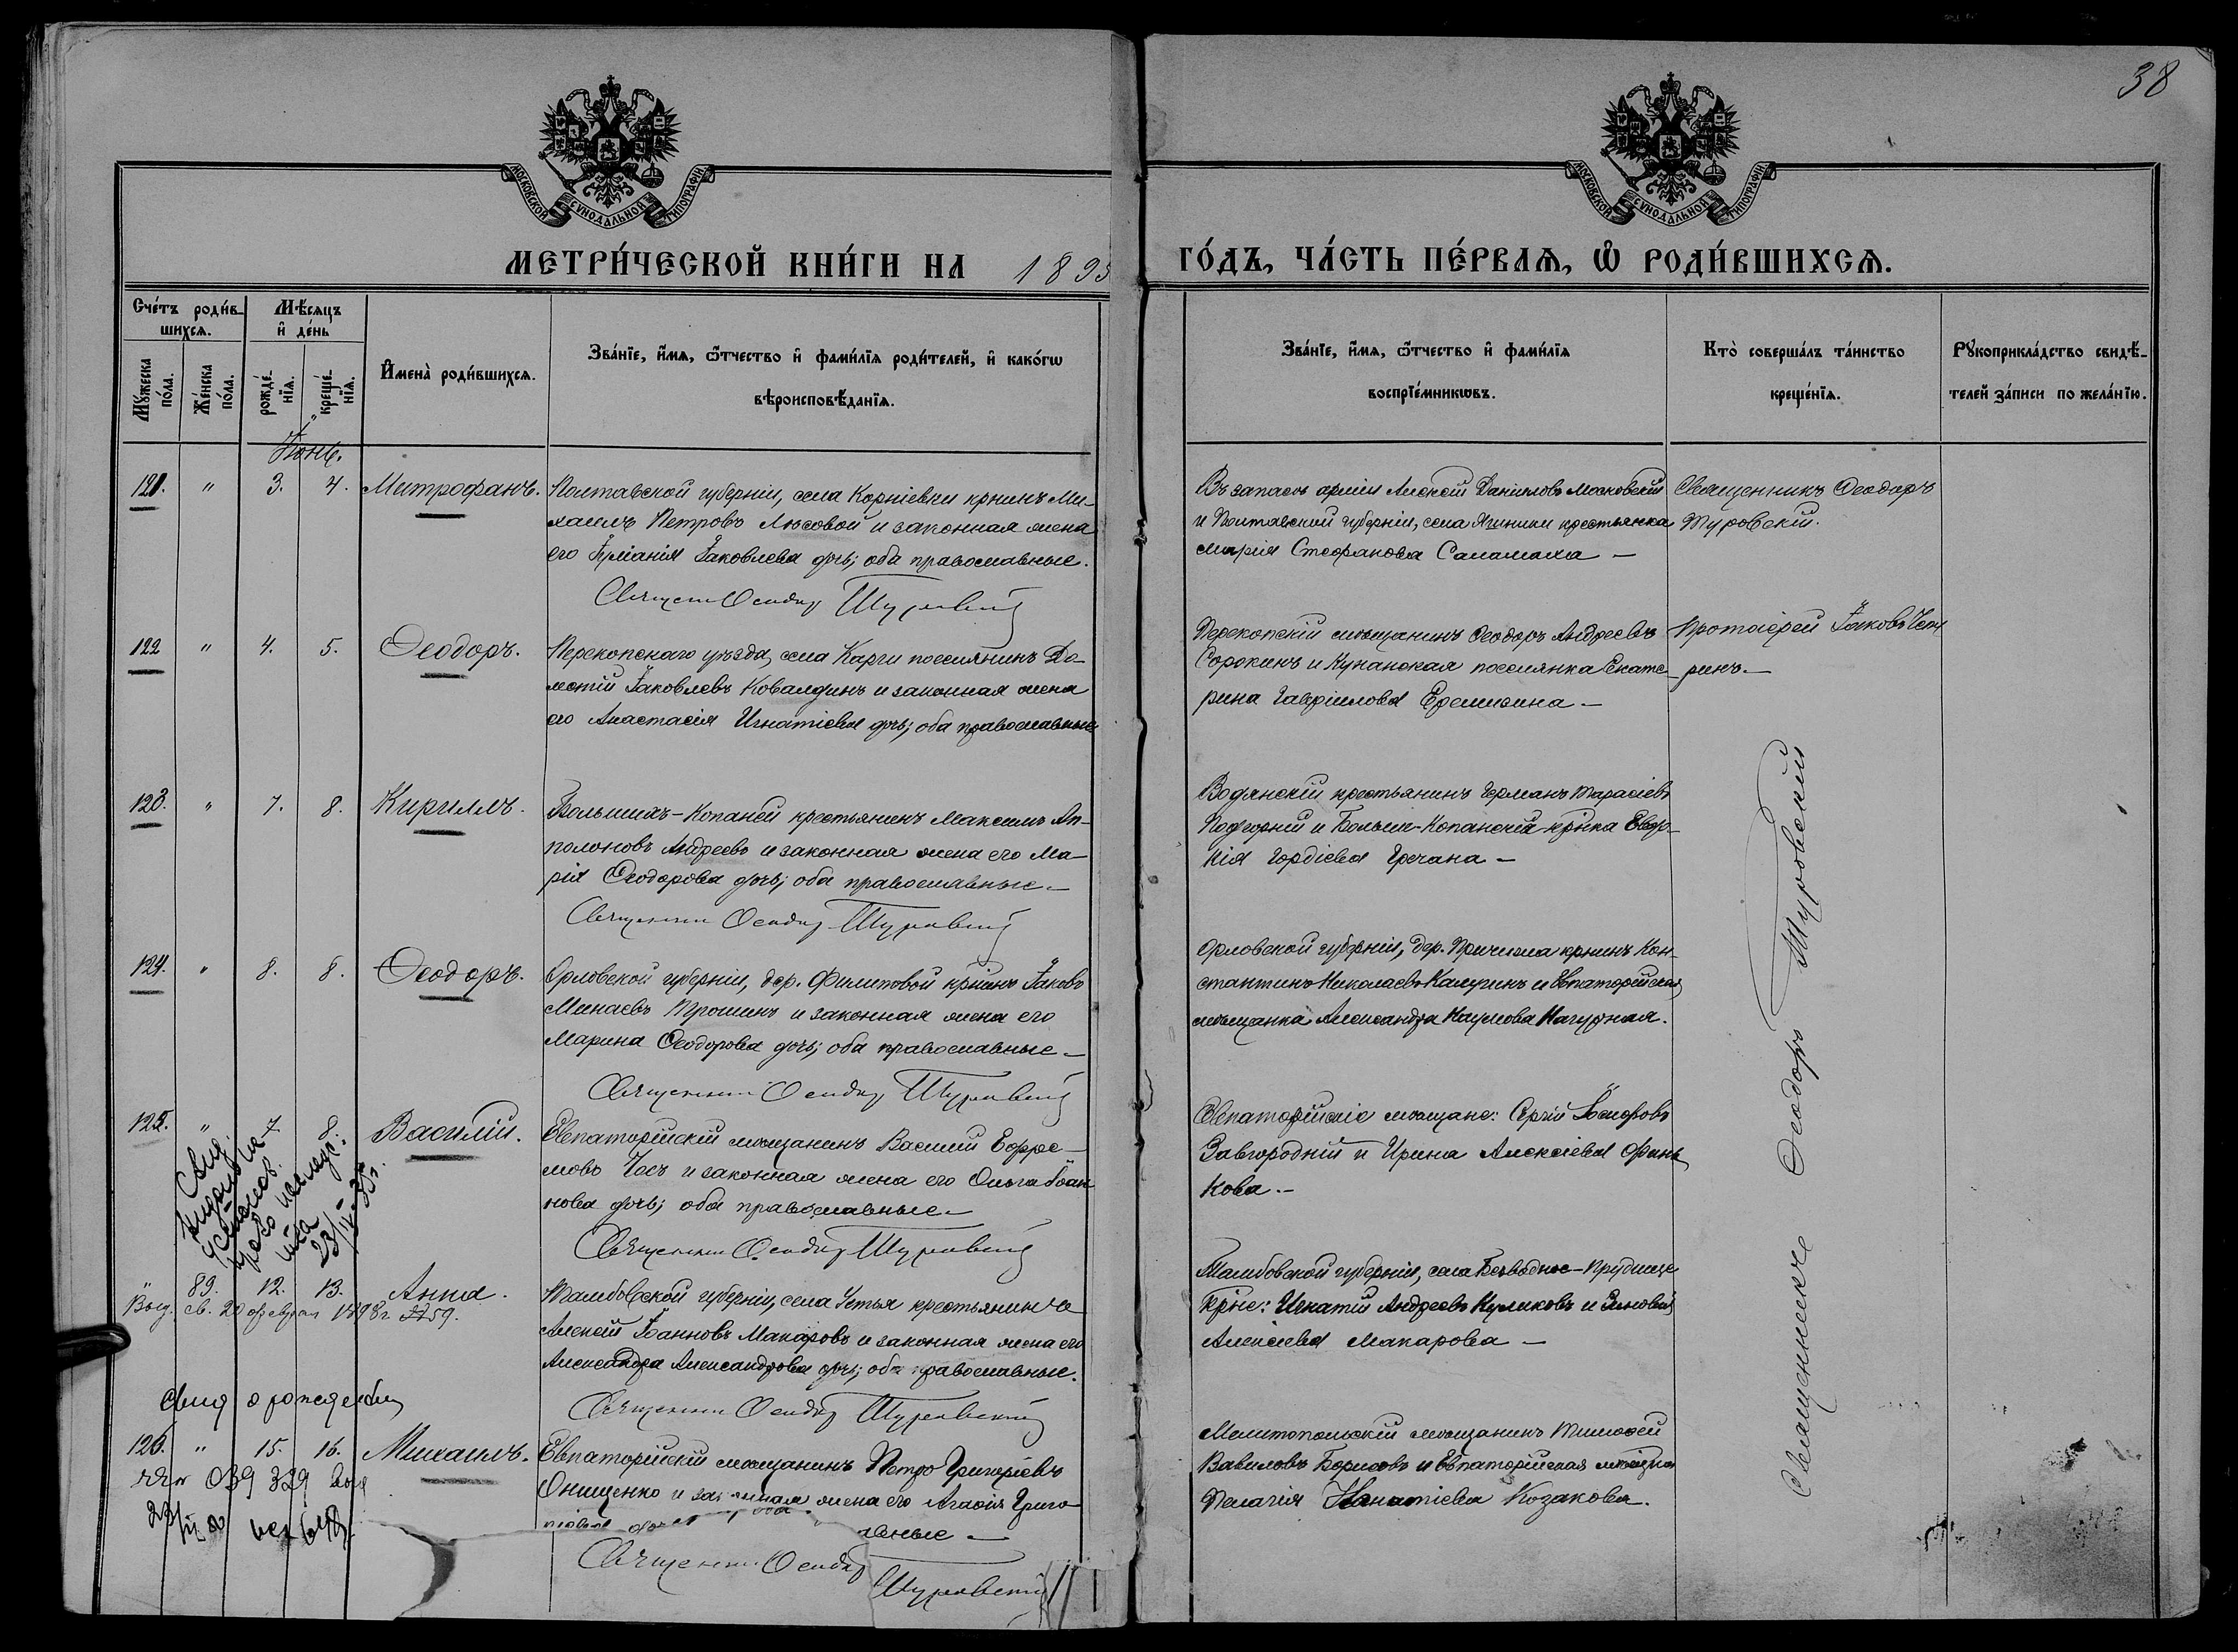 38
МОСКОВСКОЙ СѴНОДАЛЬНОЙ ТИПОГРАФІИ
МОСКОВСКОЙ СѴНОДАЛЬНОЙ ТИПОГРАФІИ
МЕТРИ́ЧЕСКОЙ КНИ́ГИ НА 1895
ГО́ДЪ, ЧА́СТЬ ПЕ́РВАѦ, Ѽ РОДИ́ВШИХСѦ.
Сче́тъ роди́в-
шихсѧ.
Мѣ́сѧцъ
и҆ де́нь
Мꙋ́жеска
по́ла.
Же́нска
по́ла.
рожде́-
нїѧ.
креще́-
нїѧ.
И҆мена̀ роди́вшихсѧ.
Зва́нїе, и҆́мѧ, ѻ҆́тчество и҆ фами́лїѧ роди́телей, и҆ како́гѡ
вѣроисповѣ́данїѧ.
Зва́нїе, и҆́мѧ, ѻ҆́тчество и҆ фами́лїѧ
воспрїе́мникѡвъ.
Кто̀ соверша́лъ та́инство
креще́нїѧ.
Рꙋкоприкла́дство свидѣ́-
телей за́писи по жела́нїю.
Іюнь.
121. " 3. 4. Митрофанъ.
Полтавской губерніи, села Корніевки крнинъ Ми-
хаилъ Петровъ Лысовой и законная жена
его Іуліанія Іаковлева дочь; оба православные.
Священ Ѳеодор Туровскій
Въ запасѣ арміи Алексій Даніиловъ Московскій
и Полтавской губерніи, села Ячники крестьянка
Марія Стефанова Саламаха —
Священникъ Ѳеодоръ
Туровскій.
122 " 4. 5. Ѳеодоръ.
Перекопскаго уѣзда, села Карги поселянинъ До-
метій Іаковлевъ Ковалдинъ и законная жена
его Анастасія Игнатіева дочь; оба православные
Перекопскій мѣщанинъ Ѳеодоръ Андреевъ
Сорокинъ и Кучанская поселянка Екате-
рина Гавріилова Еремизина —
Протоіерей Іаковъ Чеп
ринъ. —
123. " 7. 8. Кириллъ.
Большихъ-Копаней крестьянинъ Максимъ Ап-
полоновъ Андреевъ и законная жена его Ма-
рія Ѳеодорова дочь; оба православные. —
Священник Ѳеодор Туровскій
Водянскій крестьянинъ Германъ Тарасіевъ
Подгорній и Больше-Копанская кр-нка Евдо-
кія Гордіева Гречана —
124. " 8. 8. Ѳеодоръ.
Орловской губерніи, дер. Филиповой кр-нинъ Іаковъ
Минаевъ Трошинъ и законная жена его
Марина Ѳеодорова дочь; оба православные —
Священник Ѳеодор Туровскій
Орловской губерніи, дер. крнинъ Кон-
стантинъ Николаевъ Калугинъ и Евпаторійская
мѣщанка Александра Наумова Нагурная.
125. " 7. 8. Василій.
Евпаторійскій мѣщанинъ Василій Ефре-
мовъ Чосъ и законная жена его Ольга Іоан-
нова дочь; оба православные —
Священник Ѳеодор Туровскій
Евпаторійскіе мѣщане: Сергій Іосифовъ
Завгородній и Ирина Алексіева Финь
кова. —
Свид.
23/IV-35г.
" 89. 12. 13. Анна.
Выд. св. 20 февраля 1898г. №59.
Тамбовской губерніи, села Устья крестьянинъ
Алексій Іоанновъ Макаровъ и законная жена его
Александра Александрова дочь; оба православные.
Священник Ѳеодор Туровскій
Тамбовской губерніи, села Безводное-Прудище
кр-не: Игнатій Андреевъ Куликовъ и Зиновія
Алексіева Макарова —
Свид о рождении
126. " 15. 16. Михаилъ.
039 329
Евпаторійскій мѣщанинъ Петръ Григоріевъ
Онищенко и законная жена его Агафія Григо
ріева дочь оба
авные —
Священник Ѳеодор
Туровскій
Мелитопольскій мѣщанинъ Тимоѳей
Вавиловъ Борисовъ и Евпаторійская мѣщанка
Пелагія Игнатіева Козакова.
Священникъ Ѳеодоръ Туровскій